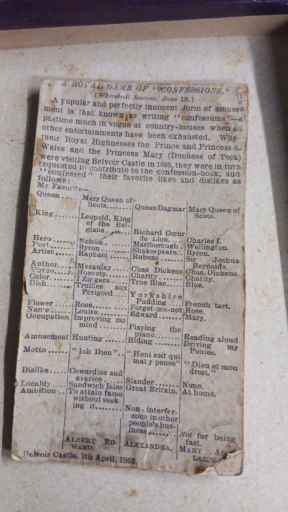 A ROYAL GAME OF "CONFESSIONS."
(Whitehall Review, June 10.)
A popular and perfectly innocent form of amuse-
ment is that known as writing "confessions"—a
pastime much in vogue at country-houses when all
other entertainments have been exhausted. Whe
their Royal Highnesses the Prince and Princess of
Wales and the Princess Mary (Duchess of Teck)
were visiting Belvoir Castle in they were in turn
requested to contribute to the confession-book, and
"confessed" their favorite likes and dislikes as
follows:
My Favorite—
Queen Mary Queen of Scots Queen Dagmar Mary Queen of Scots.
King Leopold, King of the Belgians Richard Cœur de Lion Charles I.
Hero Nelson Marlborough Wellington.
Poet Byron Shakespeare Byron.
Artist Raphael Rubens Sir Joshua Reynolds.
Author Macaulay Chas. Dickens Chas. Dickens.
Virtue Honesty Charity Charity.
Color True Blue Blue.
Dish Truffes aux Périgord Yorkshire Pudding French tart.
Flower Rose Forget-me-not Rose.
Name Louise Edward Mary.
Occupation Improving my mind Playing the piano Reading aloud
Amusement Hunting Riding Driving my Ponies.
Motto "Ich Dien" "Honi soit qui mal y pense" "Dieu et mon droit."
Dislike Cowardice and avarice Slander None.
Locality Sandwich Isles Great Britain At home.
Ambition To attain fame without seeking it Non-interference in other people's business Not for being fast.
ALBERT EDWARD. ALEXANDRA. MARY
Belvoir Castle, 9th April,